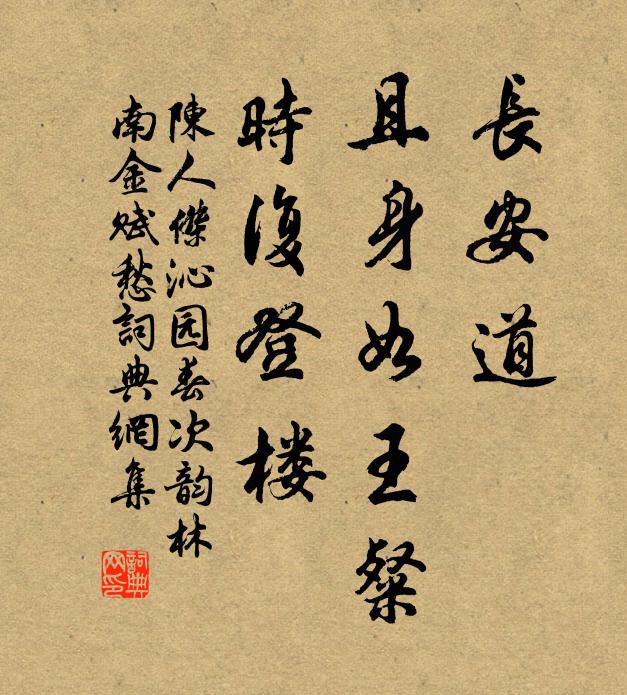 長安道
且身如王粲
時復登楼
陳人傑沁园春次韵林
南金赋愁詞典網集
詞典网印